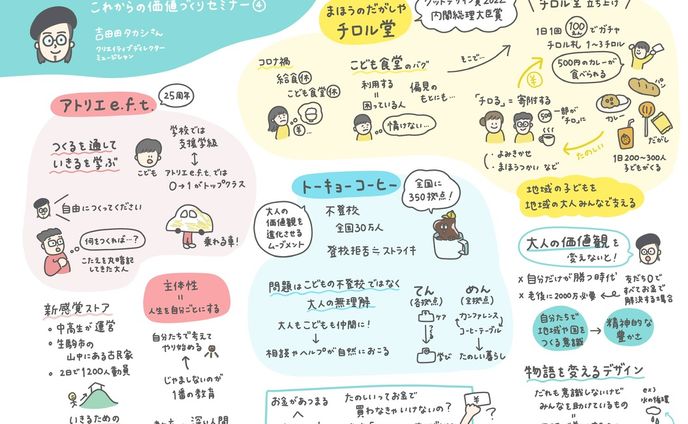 これからの価値づくりセミナー④
吉田田タカシさん
クリエイティブディレクター
ミュージシャン
アトリエe.f.t.
25周年
つくるを通して
いきるを学ぶ
こども
学校では
支援学級
アトリエe.f.t.では
0→1がトップクラス
自由につくってください
何をつくれば…?
こたえを丸暗記
してきた大人
乗れる車!
新感覚ストア
・中高生が運営
・生駒市の
山中にある古民家
・2日で1200人動員
いきるための
主体性
=
人生を自分ごとにする
自分たちで考えて
やり始める
↑
じゃましないのが
1番の教育
まほうのだがしや
チロル堂
グッドデザイン賞2022
内閣総理大臣賞
コロナ禍
給食休
こども食堂休
¥…
こども食堂のバグ
利用する
=
困っている人
偏見の
もとにも…
情けない…
そこで…
チロル堂 立ち上げ
1日1回100人でガチャ
チロル札 1~3チロル
500円のカレーが
食べられる
¥
「チロる」=寄付する
一部が
「チロ」に
500
カレー
だがし
たのしい
(・よみきかせ
・まほうつかい など)
1日200~300人
子どもがくる
地域の子どもを
地域の大人みんなで支える
トーキョーコーヒー
全国に
350拠点!
大人の
価値観を
進化させる
ムーブメント
不登校
全国30万人
登校拒否≒ストライキ
問題はこどもの不登校ではなく
大人の無理解
大人もこどもも仲間に!
↓
相談やヘルプが自然におこる
てん
(各拠点)
ケア
学び
めん
(全拠点)
カンファレンス
コーヒーテーブル
↓
たのしい暮らし
大人の価値観を
変えないと!
× 自分だけが勝つ時代
× 老後に2000万必要
友だち0で
すべてお金で
解決する場合
自分たちで
地域や国を
つくる意識
→
精神的な
豊かさ
物語を変えるデザイン
だれも意識しないけど
みんなを助けているもの
ex)
水の循環
お金があつまる
たのしいってお金で
買わなきゃいけないの?
¥